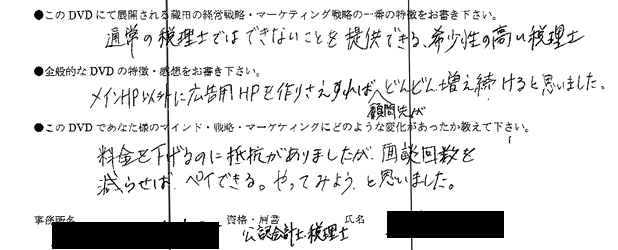 ●このDVDにて展開される蔵田の経営戦略・マーケティング戦略の一番の特徴をお書き下さい。
通常の税理士ではできないことを提供できる、希少性の高い税理士
●全般的なDVDの特徴・感想をお書き下さい。
メインHP以外に広告用HPを作りさえすれば、どんどん増え続けると思いました。
顧問先が
●このDVDであなた様のマインド・戦略・マーケティングにどのような変化があったか教えて下さい。
料金を下げるのに抵抗がありましたが、面談回数を
減らせば、ペイできる。やってみよう、と思いました。
事務所名 資格・肩書 氏名
公認会計士・税理士